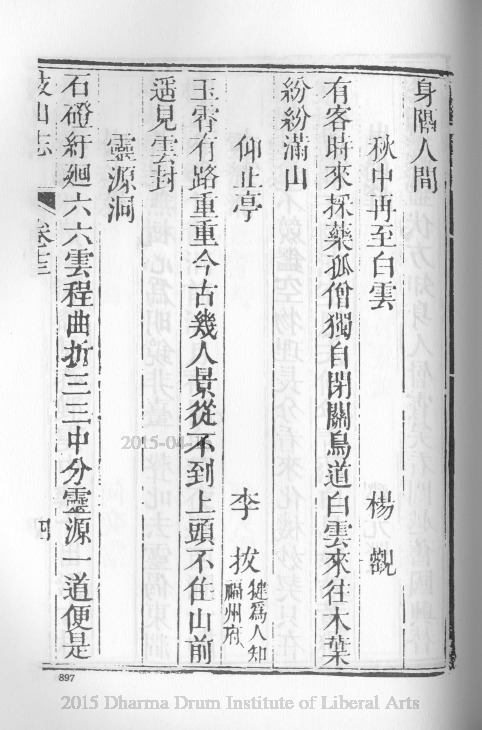 身隅人間
秋中再至白雲 楊觀
有客時來採藥孤僧獨自閉關鳥道白雲來往木葉
紛紛滿山
仰止亭 李拔 犍爲人知福州府
玉霄有路重重今古幾人景從不到上頭不住山前
遥見雲封
靈源洞
石磴紆廻六六雲程曲折三三中分靈源一道便是
鼓山志 卷十三 四
897
2015-04-
2015 Dharma Drum Institute of Liberal Arts